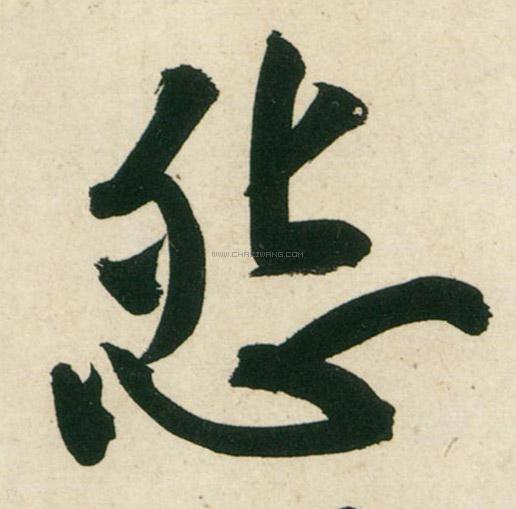 怨
WWW.CHAZIWANG.COM